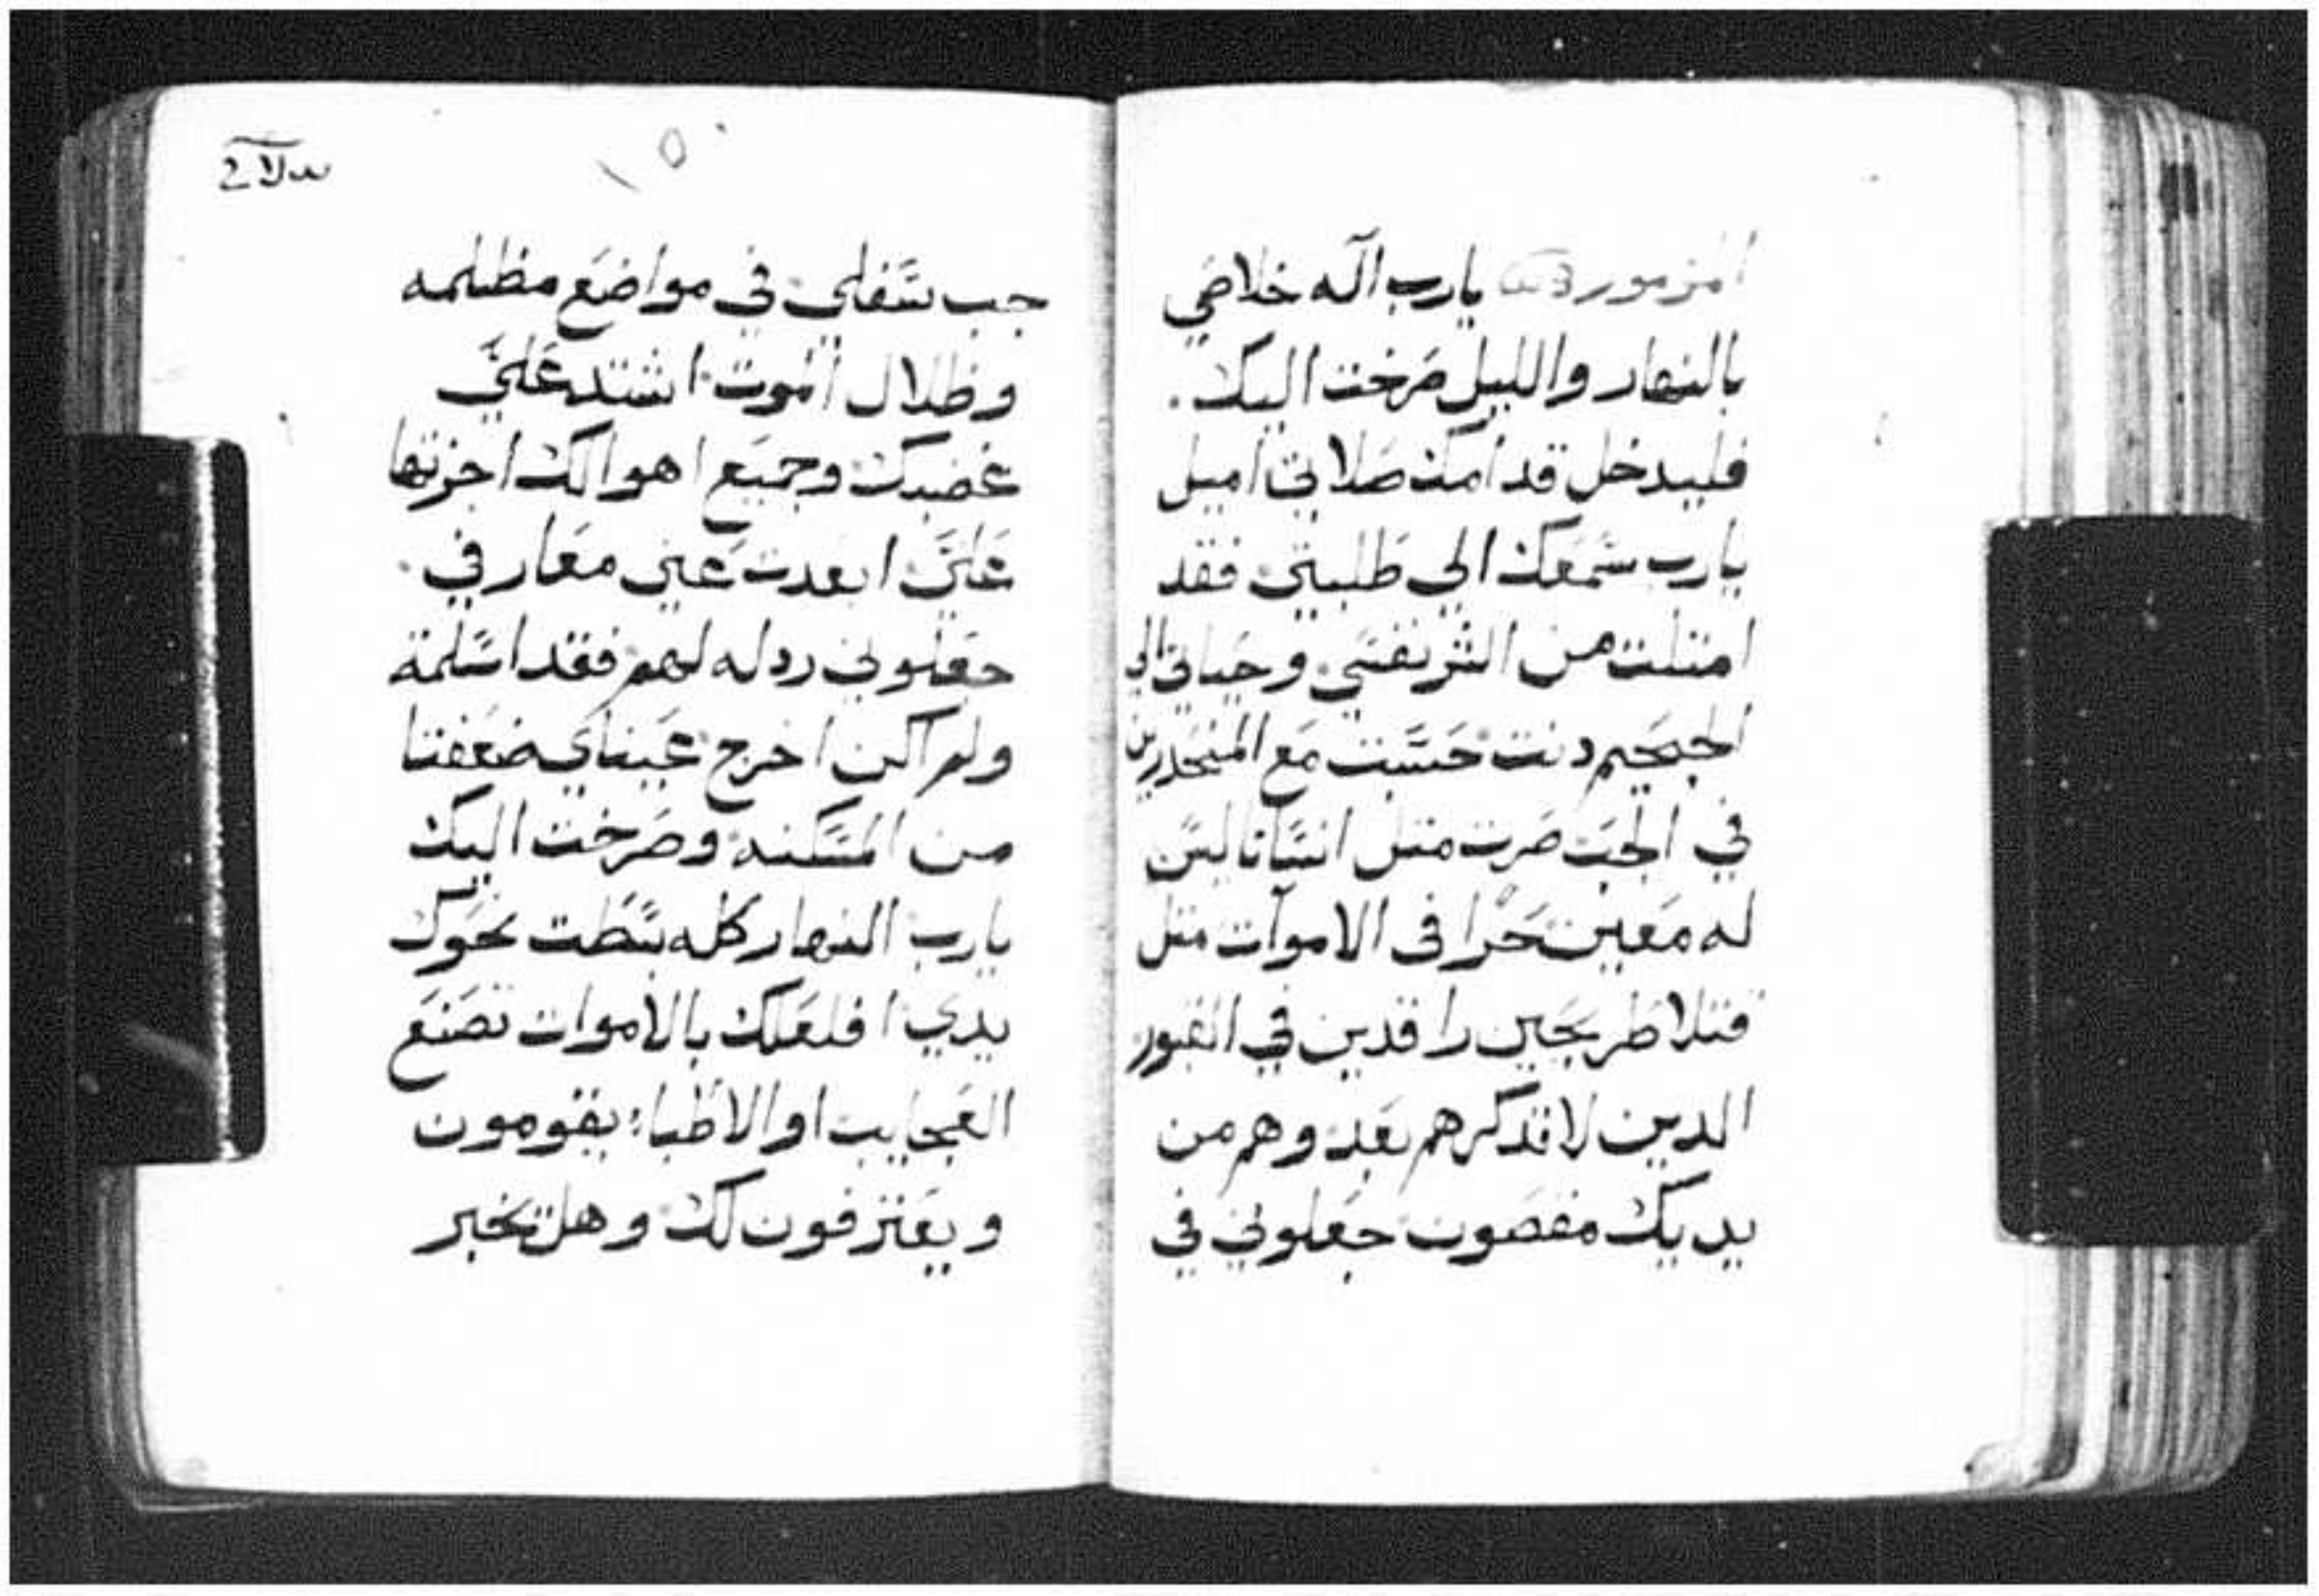 المزمور يارب اله خلاصي
بالنهار والليل صرخت اليك.
فليدخل قدامك صلاتي اميل
يارب سمعك الي طلبتي فقد
امتلت من الشر نفسي وحياتي الي
الجحيم دنت حسبت مع المنحدرين
في الجب صرت متل انسانا ليس
له معين حرا في الاموات متل
قتلا طريحين راقدين في القبور
الدين لا تدكرهم بعد وهم من
يديك مقصون جعلوني في
جب سفلي في مواضع مظلمه
وظلال الموت اشتد علي
غضبك وجميع اهوالك اجزتها
علي ابعدت عني معارفي.
جعلوني ردله لهم فقد اسلمة
ولم اكن اخرج عيناي ضعفتا
من المسكنه وصرخت اليك
يارب النهار كله بسطت نحوك
يدي افلعلك بالاموات تصنع
العجايب او الاطباء يقومون
ويعترفون لك وهل تخبر